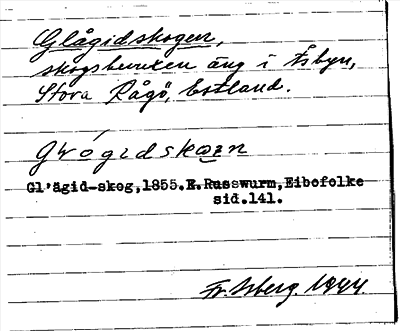 Glågidskogen,
skogsbunken äng i Åsbyn,
Stora Rågö, Estland.
Gl'ägid-skog,1855.E.Russwurm,Eibofolke
sid.141.
Fr. Isberg. 1944